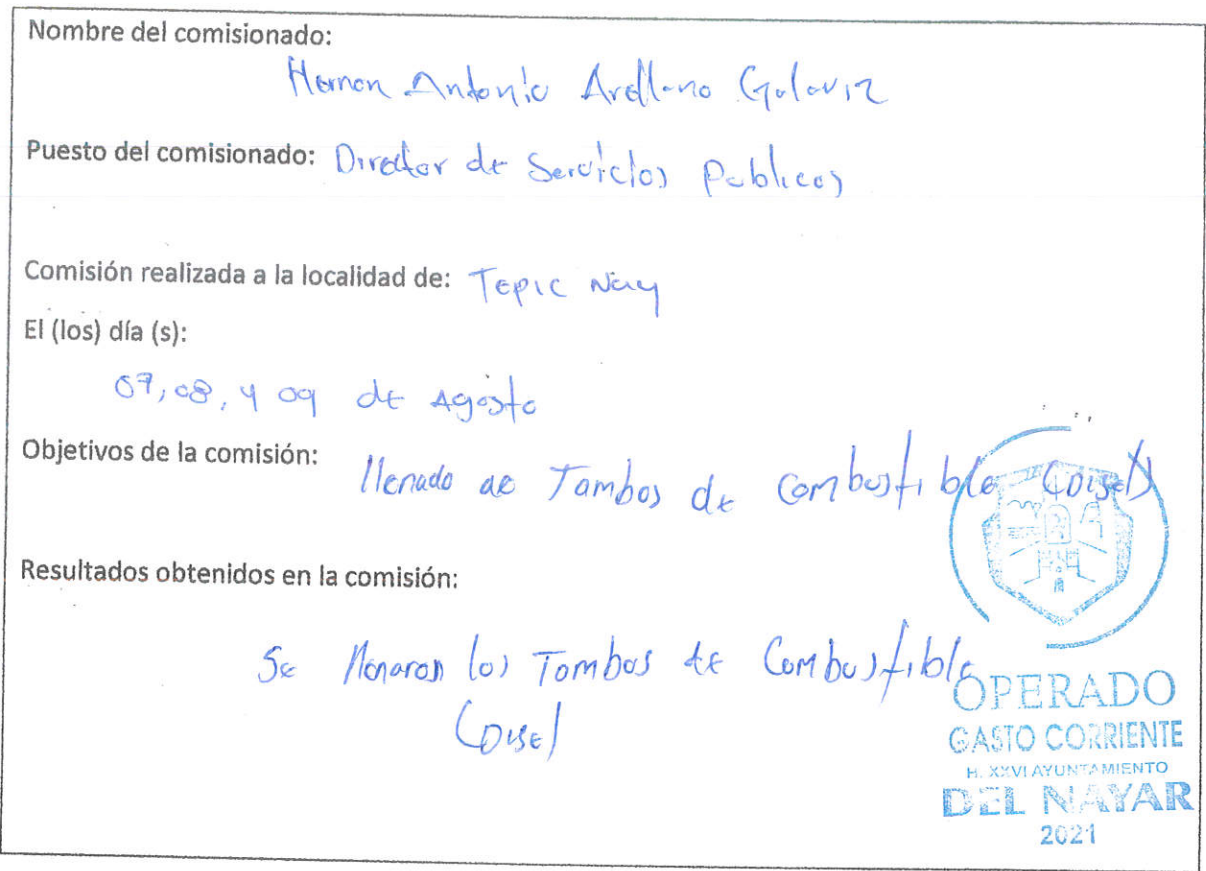 Nombre del comisionado:
Hernan Antonio Arellano Galaviz
Puesto del comisionado: Director de Servicios Publicos
Comisión realizada a la localidad de: Tepic Nay
El (los) día (s):
07, 08, y 09 de Agosto
Objetivos de la comisión: llenado de Tambos de Combustible (Disel)
Resultados obtenidos en la comisión:
Se llenaron los Tambos de Combustible
(Disel
OPERADO
GASTO CORRIENTE
H. XXVI AYUNTAMIENTO
DEL NAYAR
2021